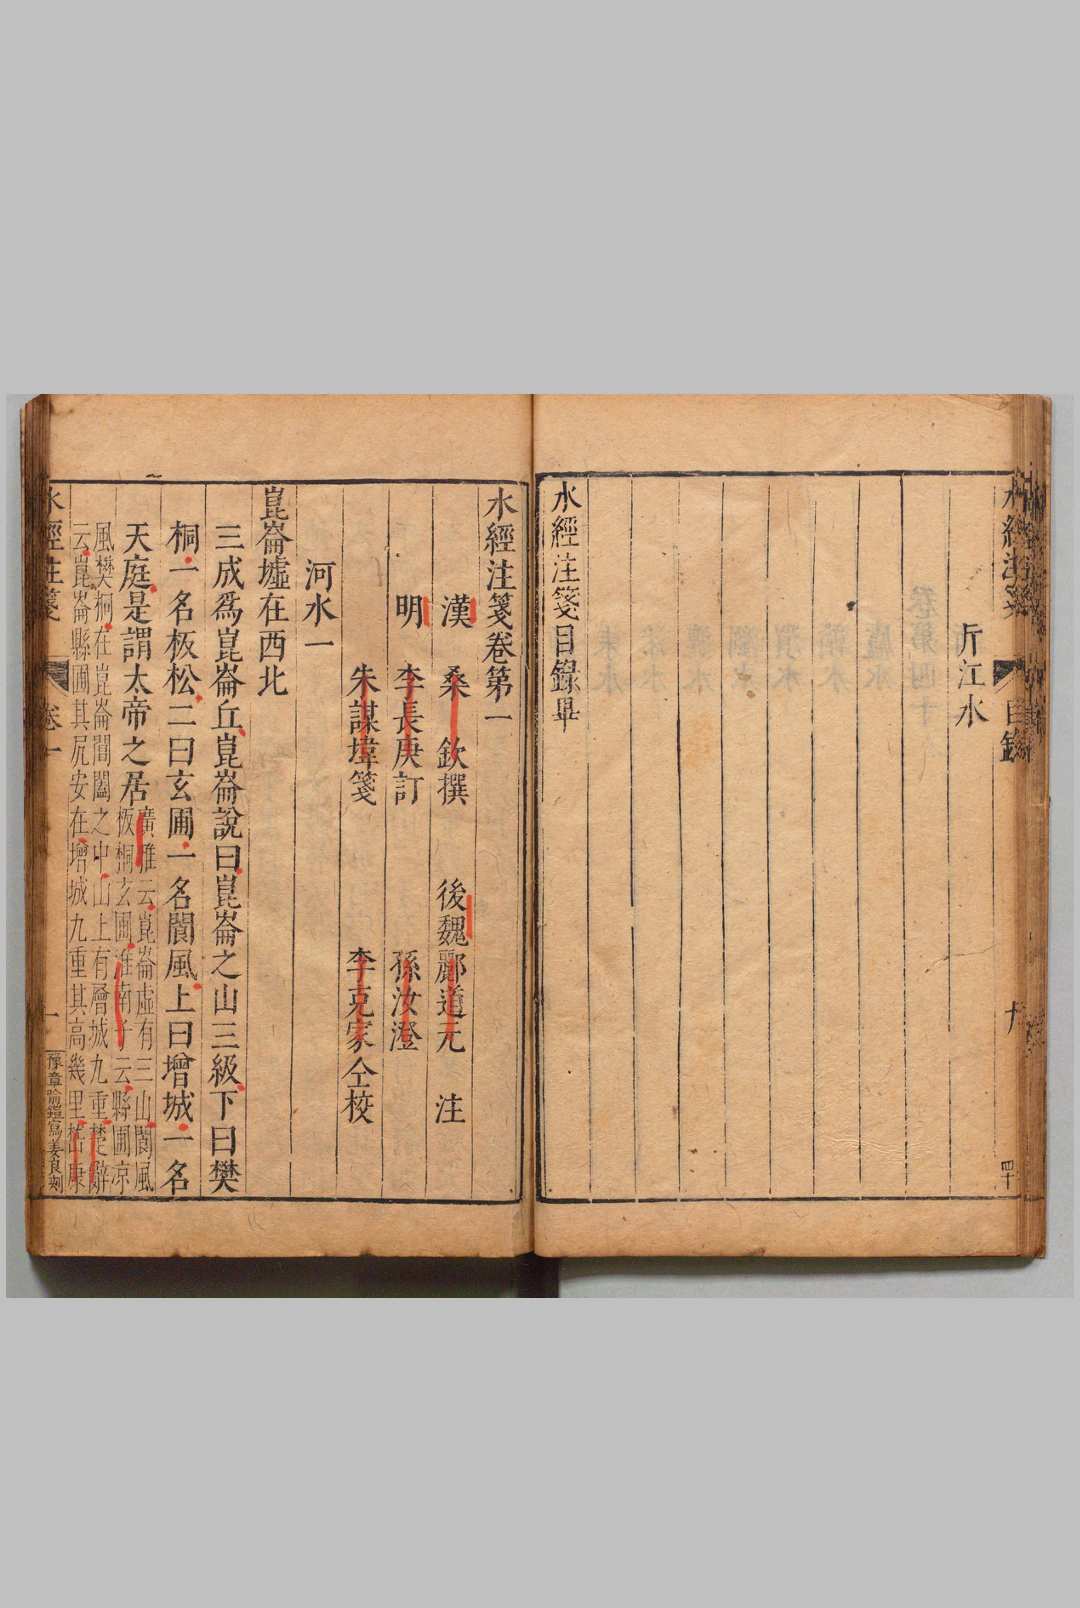 斤江水
水經注箋目錄畢
水經注箋卷第一
漢 桑 欽撰 後魏酈道元 注
明 李長庚訂 孫汝澄
朱謀㙔箋 李克家仝校
河水一
崑崙墟在西北
三成爲崑崙丘崑崙說曰崑崙之山三級下曰樊
桐一名板松二曰玄圃一名閬風上曰增城一名
天庭是謂太帝之居
廣雅云崑崙虛有三山閬風
板桐玄圃淮南子云縣圃涼
風樊桐在崑崙閶闔之中山上有層城九重楚辭
云崑崙縣圃其凥安在增城九重其高幾里嵇康
水經注箋 卷一 一